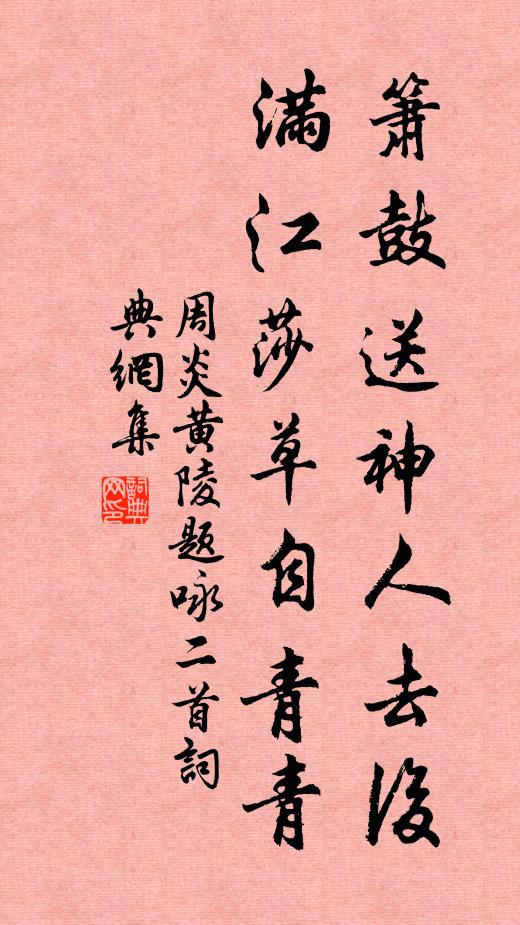 簫鼓送神人去後
滿江莎草自青青
周炎黄陵題咏二首詞
典網集
詞典網印